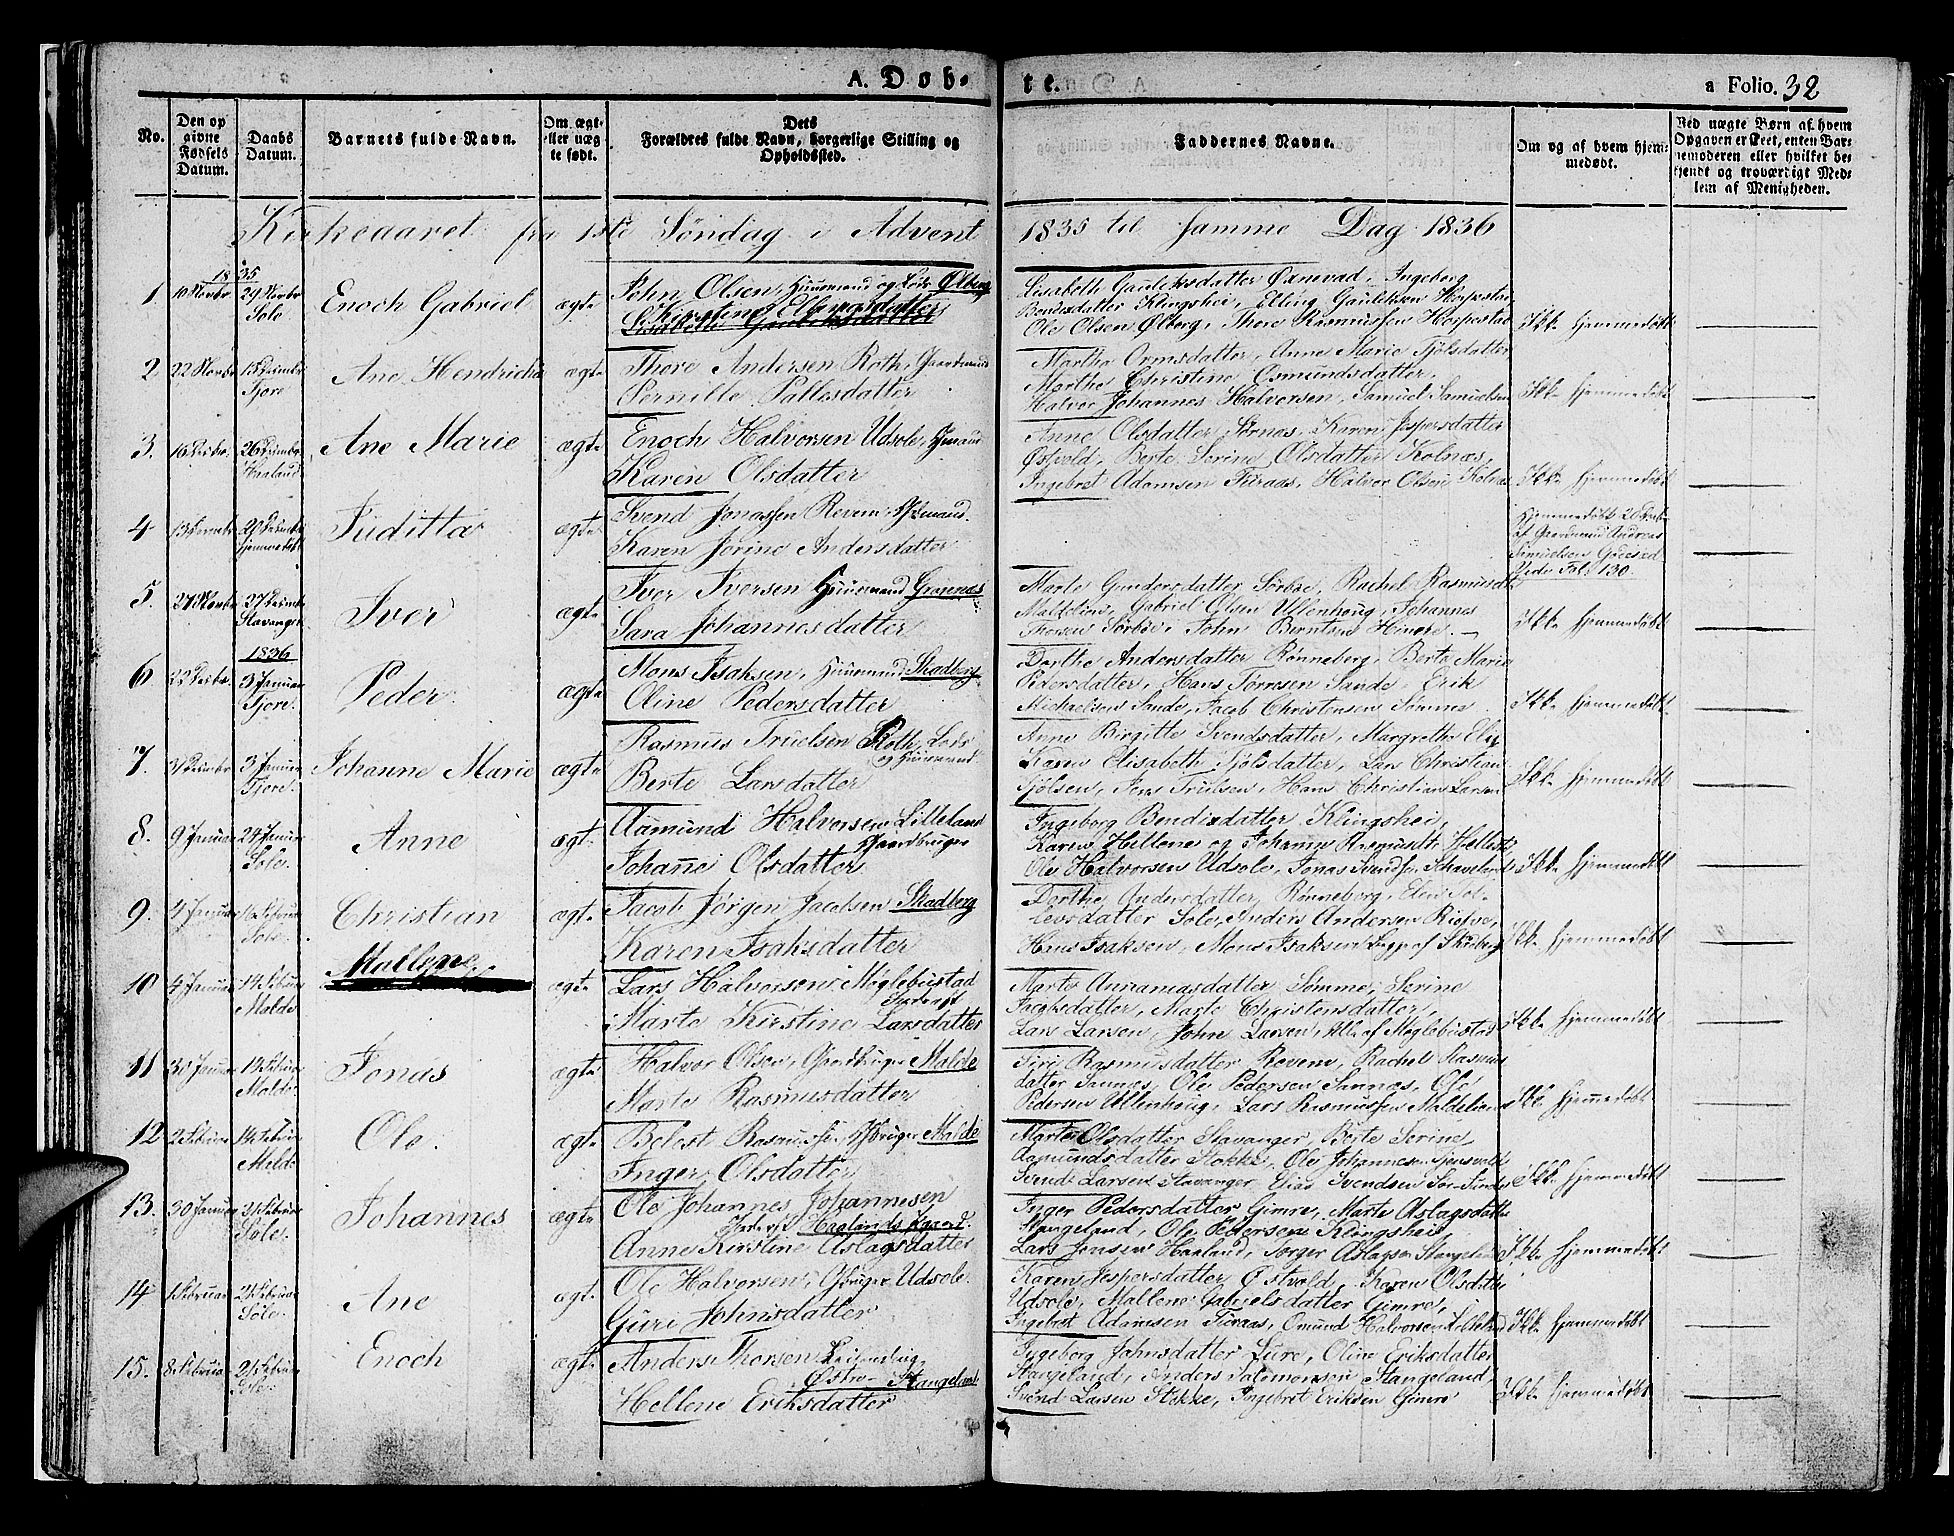 A. Døb-
te.
a Folio. 32
No.
Den op
givne
Fødsels
Datum.
Daabs
Datum.
Barnets fulde Navn.
Om ægte
eller uæg
te født.
Dets
Forældres fulde Navn, borgerlige Stilling og
Opholdssted.
Faddernes Navne.
Om og af hvem hjem-
medøbt.
Ved uægte Børn af hvem
Opgaven er skeet, enten Bar-
nemoderen eller hvilket be-
kjendt og troværdigt Med-
lem af Menigheden.
Kirkeaaret fra 1ste Søndag i Advent 1835 til samme Dag 1836
1835
1 10 Novbr 29 Novbr Sole Enoch Gabriel ægte
John Olsen, Huusmand og Lods Ølberg
Kirstine Ellingsdatter
Lisabeth Gauteksdatter Øxnevad, Ingeborg
Bendixdatter Klingshei, Elling Gauteksen Horpestad
Ole Olsen Ølberg, Thore Rasmussen Horpestad
Ikke hjemmedøbt
2 22 Novbr Tjore Ane Hendricha ægte
Thore Andersen Roth, Gaardmand
Pernille Pallesdatter
Martha Ormsdatter, Anne Marie Sjølsdatter
Marthe Christine Osmundsdatter,
Halvor Johannes Halvorsen, Samuel Samuelsen
Ikke hjemmedøbt
3. 16 Decbr. 26 Decembr. Haaland Ane Marie ægte
Enoch Halvorsen Udsole, Hmand
Karen Olsdatter
Anne Olsdatter Sørnes, Karen Jespersdatter
Østvold, Berte Serine Olsdatter Kolnæs,
Ingebret Adamsen Furaas, Halvor Olsen Kolnæs
Ikke hjemmedøbt
4 hjemmedøbt Juditta ægte
Svend Jonassen Revem
Karen Jørine Andersdatter
Hjemmedøbt
af Gaardmand Andreas
Simuelsen Godeset
Vide Fol. 130.
5. 27 Novbr 27 Decembr Stavanger Iver ægte
Iver Iversen Huusmand Grannæs
Sara Johannesdatter
Marte Gundersdatter Sørbøe, Rachel Rasmusdtr
Maldelino, Gabriel Olsen Ullenhoug, Johannes
Thorsen Sørbøe, John Berntsen Hinore.
Ikke hjemmedøbt
1836
6 22 Decbr. 3 Januar Tjore. Peder. ægte
Mons Isaksen, Huusmand Skadberg
Oline Pedersdatter
Dorthe Andersdatter Rønneberg, Berte Marie
Pedersdatter, Hans Tørresen Sande, Erik
Michaelsen Sande, Jacob Christensen Sømme.
Ikke hjemmedøbt
7. 3 Januar Tjore. Johanne Marie ægte
Rasmus Truelsen Roth, Lods
og Huusmand
Berte Larsdatter
Anne Birgitte Svendsdatter, Margrethe Eliz
Karen Elisabeth Sjølsdatter, Lars Christian
Sjølsen, Jens Truelsen, Hans Christian Larsen
Ikke hjemmedøbt
8. 9 Januar 24 Januar Sole. Anne ægte
Aamund Halvorsen Lilleland
Gaardbruger
Johanne Olsdatter
Ingeborg Bendixdatter Klingshei,
Karen Hellene og Johanne Rasmusdtr
Ole Halvorsen Udsole, Jonas Svendsen
Ikke hjemmedøbt
9. 4 Januar Sole. Christian ægte
Jacob Jørgen Jacobsen Skadberg
Karen Isaksdatter
Dorthe Andersdatter Rønneberg, Elen Tol-
levsdatter Sole, Anders Andersen
Hans Isaksen, Mons Isaksen begge af Skadberg
Ikke hjemmedøbt
10 4 Januar 14 Februar Malde Mallene ægte
Lars Halvorsen, Møglebustad
Inderst
Marte Kirstine Larsdatter
Marte Aanansdatter Sømme, Serine
Jacobsdatter, Marte Christensdatter,
Lars Larsen, John Larsen, Alle af Møglebustad
Ikke hjemmedøbt
11 30 Januar 14 Februar Malde. Jonas ægte
Halvor Olsen, Gaardbruger Malde
Marte Rasmusdatter
Siri Rasmusdatter Revem, Rachel Rasmus
datter Sunnæs, Ole Pedersen Sannæs, Ole
Pedersen Ullenhoug, Lars Rasmussen Maldeland
Ikke hjemmedøbt
12 2 Februar 14 Februar Malde Ole. ægte
Belest Rasmussen Gbruger Malde
Inger Olsdatter
Marte Olsdatter Stavanger, Berte Serine
Aamundsdatter Stokke, Ole Johannesen
Svend Larsen Stavanger, Elias Svendsen
Ikke hjemmedøbt
13. 30 Januar 21 Februar Sole. Johannes ægte
Ole Johannes Johannesen
Inderst Haalands Pgaard.
Anne Kirstine Aslagsdatter
Inger Pedersdatter Gimre, Marte Aslagsdatter
Stangeland, Ole Pedersen Klingshei,
Lars Jonsen Haaland, Torger Aslagsen Stangeland
Ikke hjemmedøbt
14 1 Februar 21 Februar Sole. Ane ægte
Ole Halvorsen, Gbruger Udsole.
Guri Johnsdatter
Karen Jespersdatter Østvold, Karen Olsdatter
Udsole, Mallene Gabrielsdatter Gimre,
Ingebret Adamsen Furaas, Omund Halvorsen Lilleland
Ikke hjemmedøbt
15. 8 Februar 21 Februar Sole. Enoch ægte
Anders Thorsen
Østre Stangeland
Hellene Eriksdatter
Ingeborg Johnsdatter Sure, Oline Eriksdatter
Stangeland, Anders Salomonsen Stangeland,
Svend Larsen Stokke, Ingebret Eriksen Gimre
Ikke hjemmedøbt